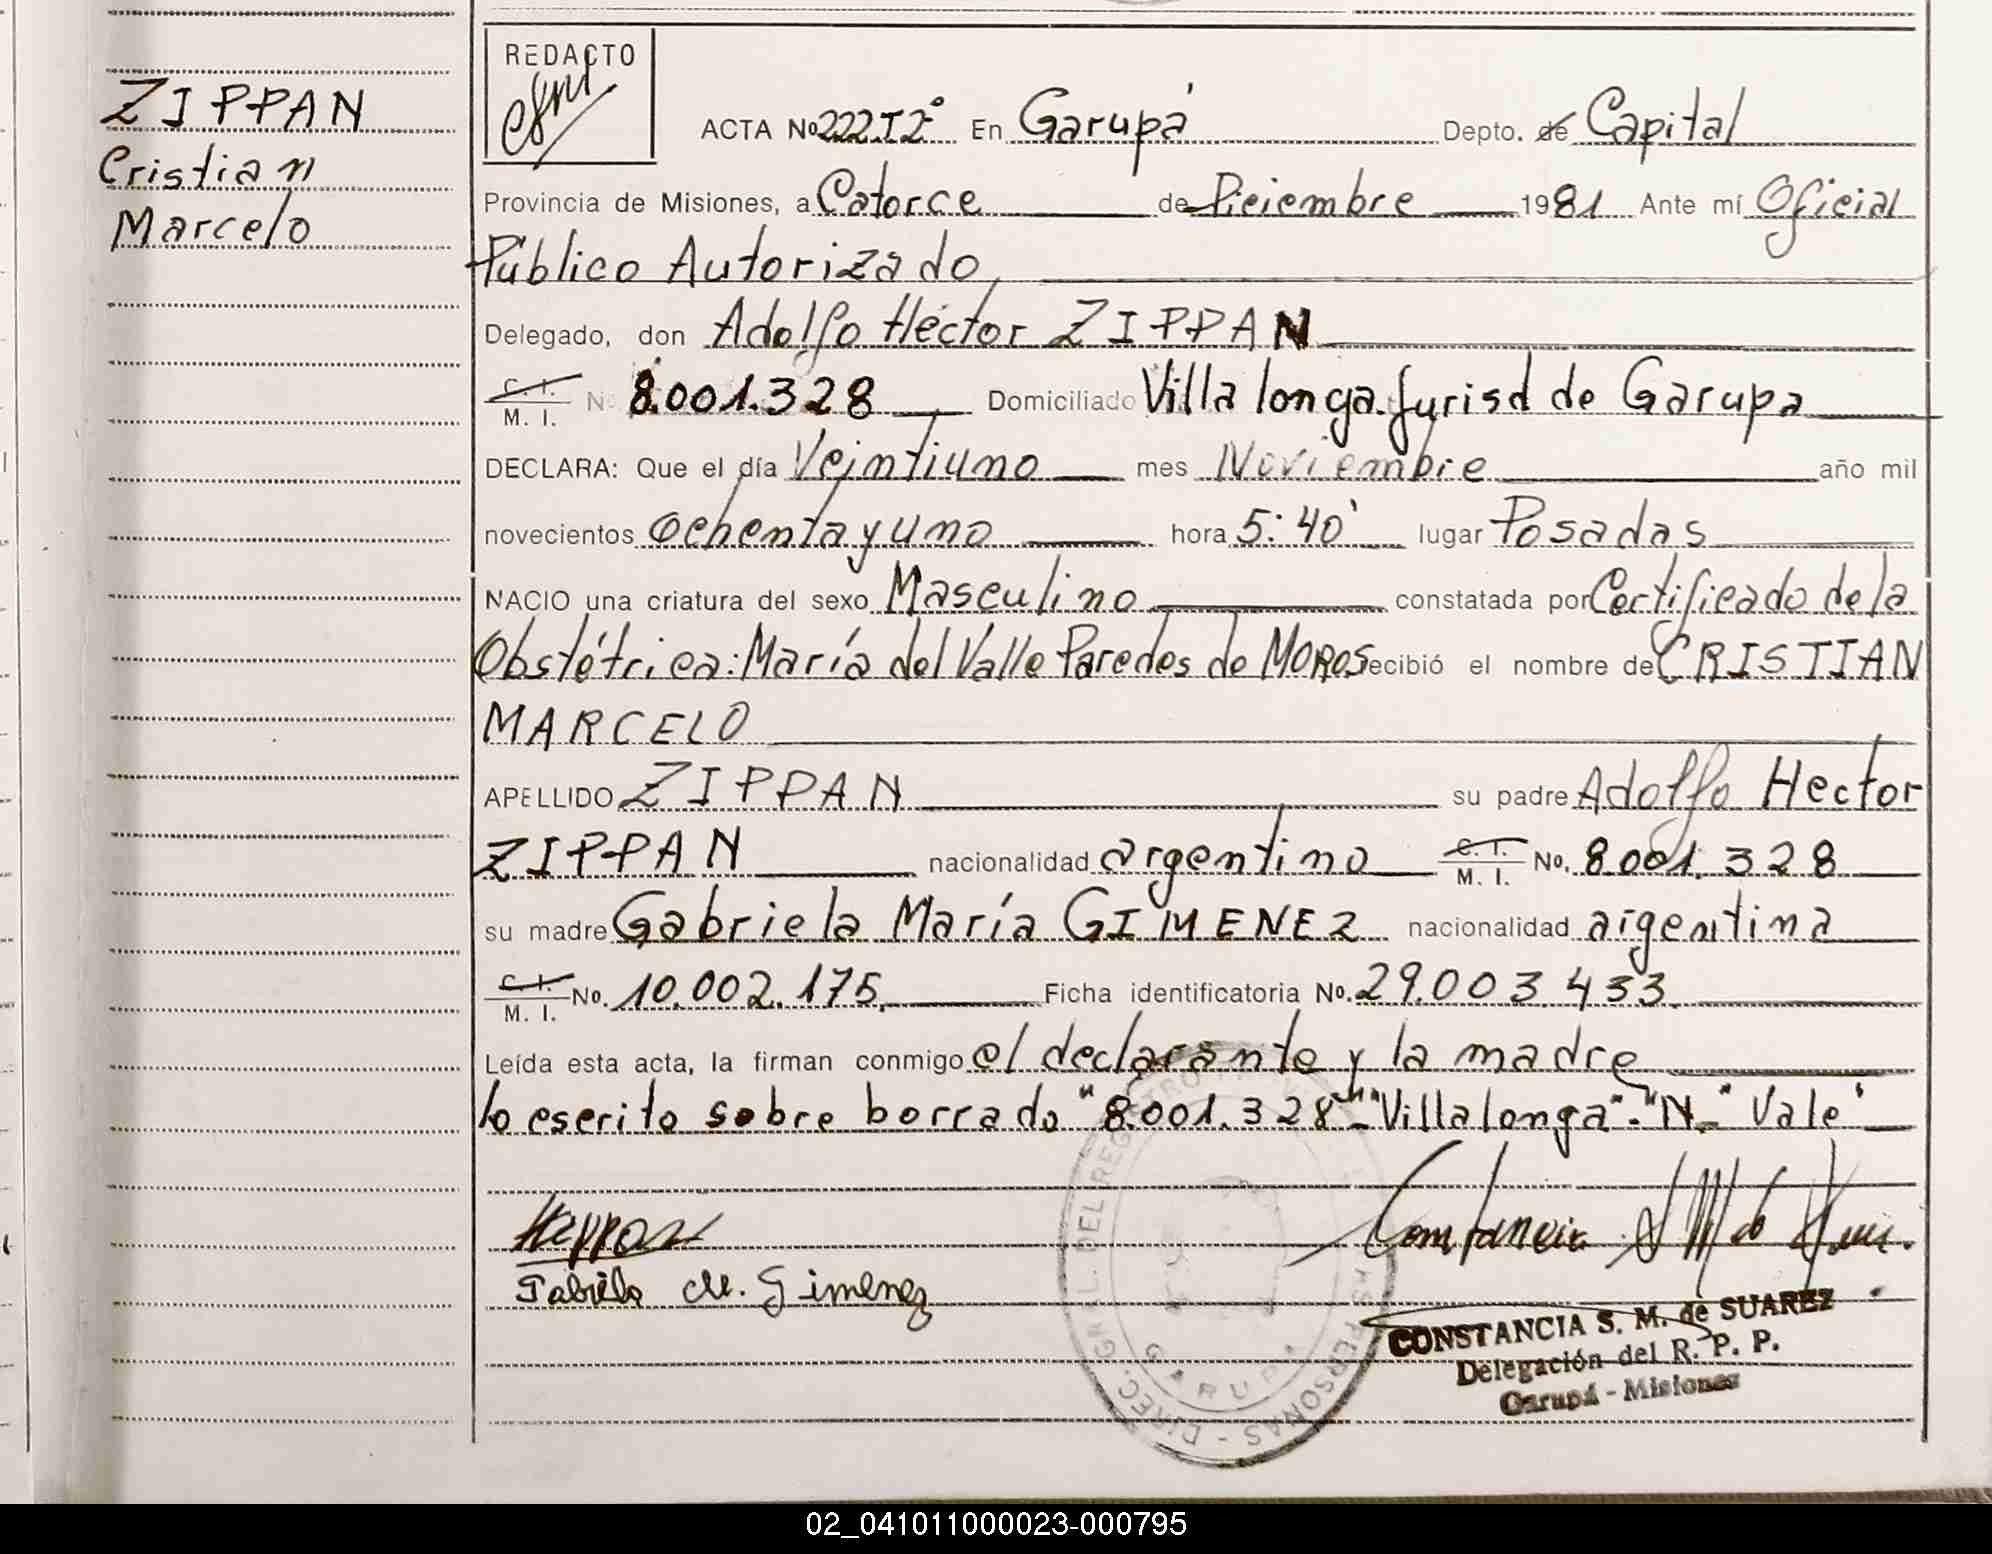 ZIPPAN
Cristian
Marcelo
REDACTO
ACTA No 222 T 2° En Garupá Depto. de Capital
Provincia de Misiones, a Catorce de Diciembre 1981 Ante mí Oficial
Público Autorizado
Delegado, don Adolfo Héctor ZIPPAN
C. I.
M. I. No 8.001.328 Domiciliado Villa longa. Jurisd de Garupa
DECLARA: Que el día Veintiuno mes Noviembre año mil
novecientos ochenta y uno hora 5:40' lugar Posadas
NACIO una criatura del sexo Masculino constatada por Certificado de la
Obstétrica: María del Valle Paredes de MOROS ecibió el nombre de CRISTIAN
MARCELO
APELLIDO ZIPPAN su padre Adolfo Hector
ZIPPAN nacionalidad argentino C. I. M. I. No. 8.001.328
su madre Gabriela María GIMENEZ nacionalidad argentina
C. I. M. I. No. 10.002.175. Ficha identificatoria No. 29.003.433.
Leída esta acta, la firman conmigo el declarante y la madre
lo escrito sobre borrado "8.001.328" - "Villalonga" - "N" - "Vale"
Gabriela M. Gimenez
CONSTANCIA S. M. de SUAREZ
Delegación del R. P. P.
Garupá - Misiones
DIREC. GRAL. DEL REG PERSONAS -
GARUPA
02_041011000023-000795